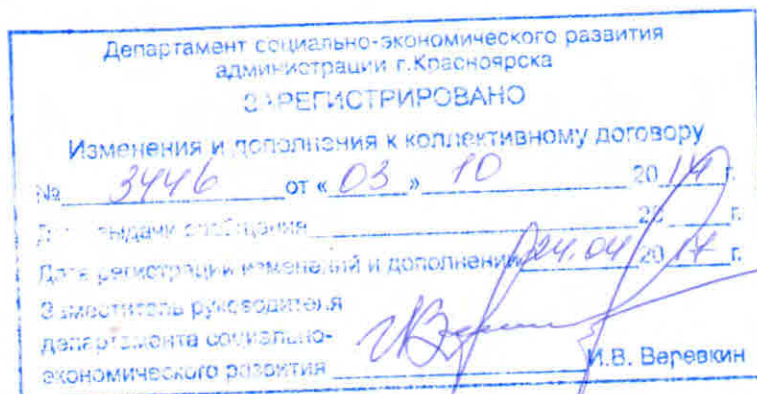 Департамент социально-экономического развития
администрации г.Красноярска
ЗАРЕГИСТРИРОВАНО
Изменения и дополнения к коллективному договору
№ 3446 от « 03 » 10 20 14 г.
Дата выдачи сообщения 20 г.
Дата регистрации изменений и дополнений 24.04 20 17 г.
Заместитель руководителя
департамента социально-
экономического развития И.В. Веревкин